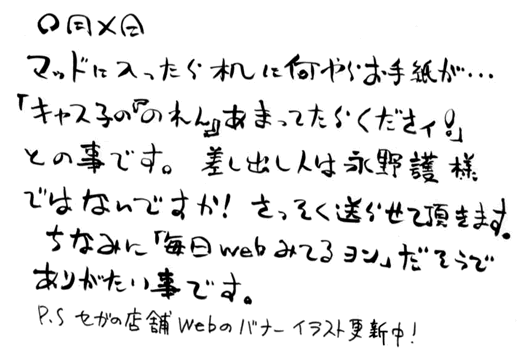 〇月×日
マッドに入ったら机に何やらお手紙が…
「キャス子の『のれん』あまってたらくださィ!」
との事です。差し出し人は永野護様
ではないですか!さっそく送らせて頂きます。
ちなみに「毎日webみてるヨン」だそうで
ありがたい事です。
P.S セガの店舗Webのバナーイラスト更新中!